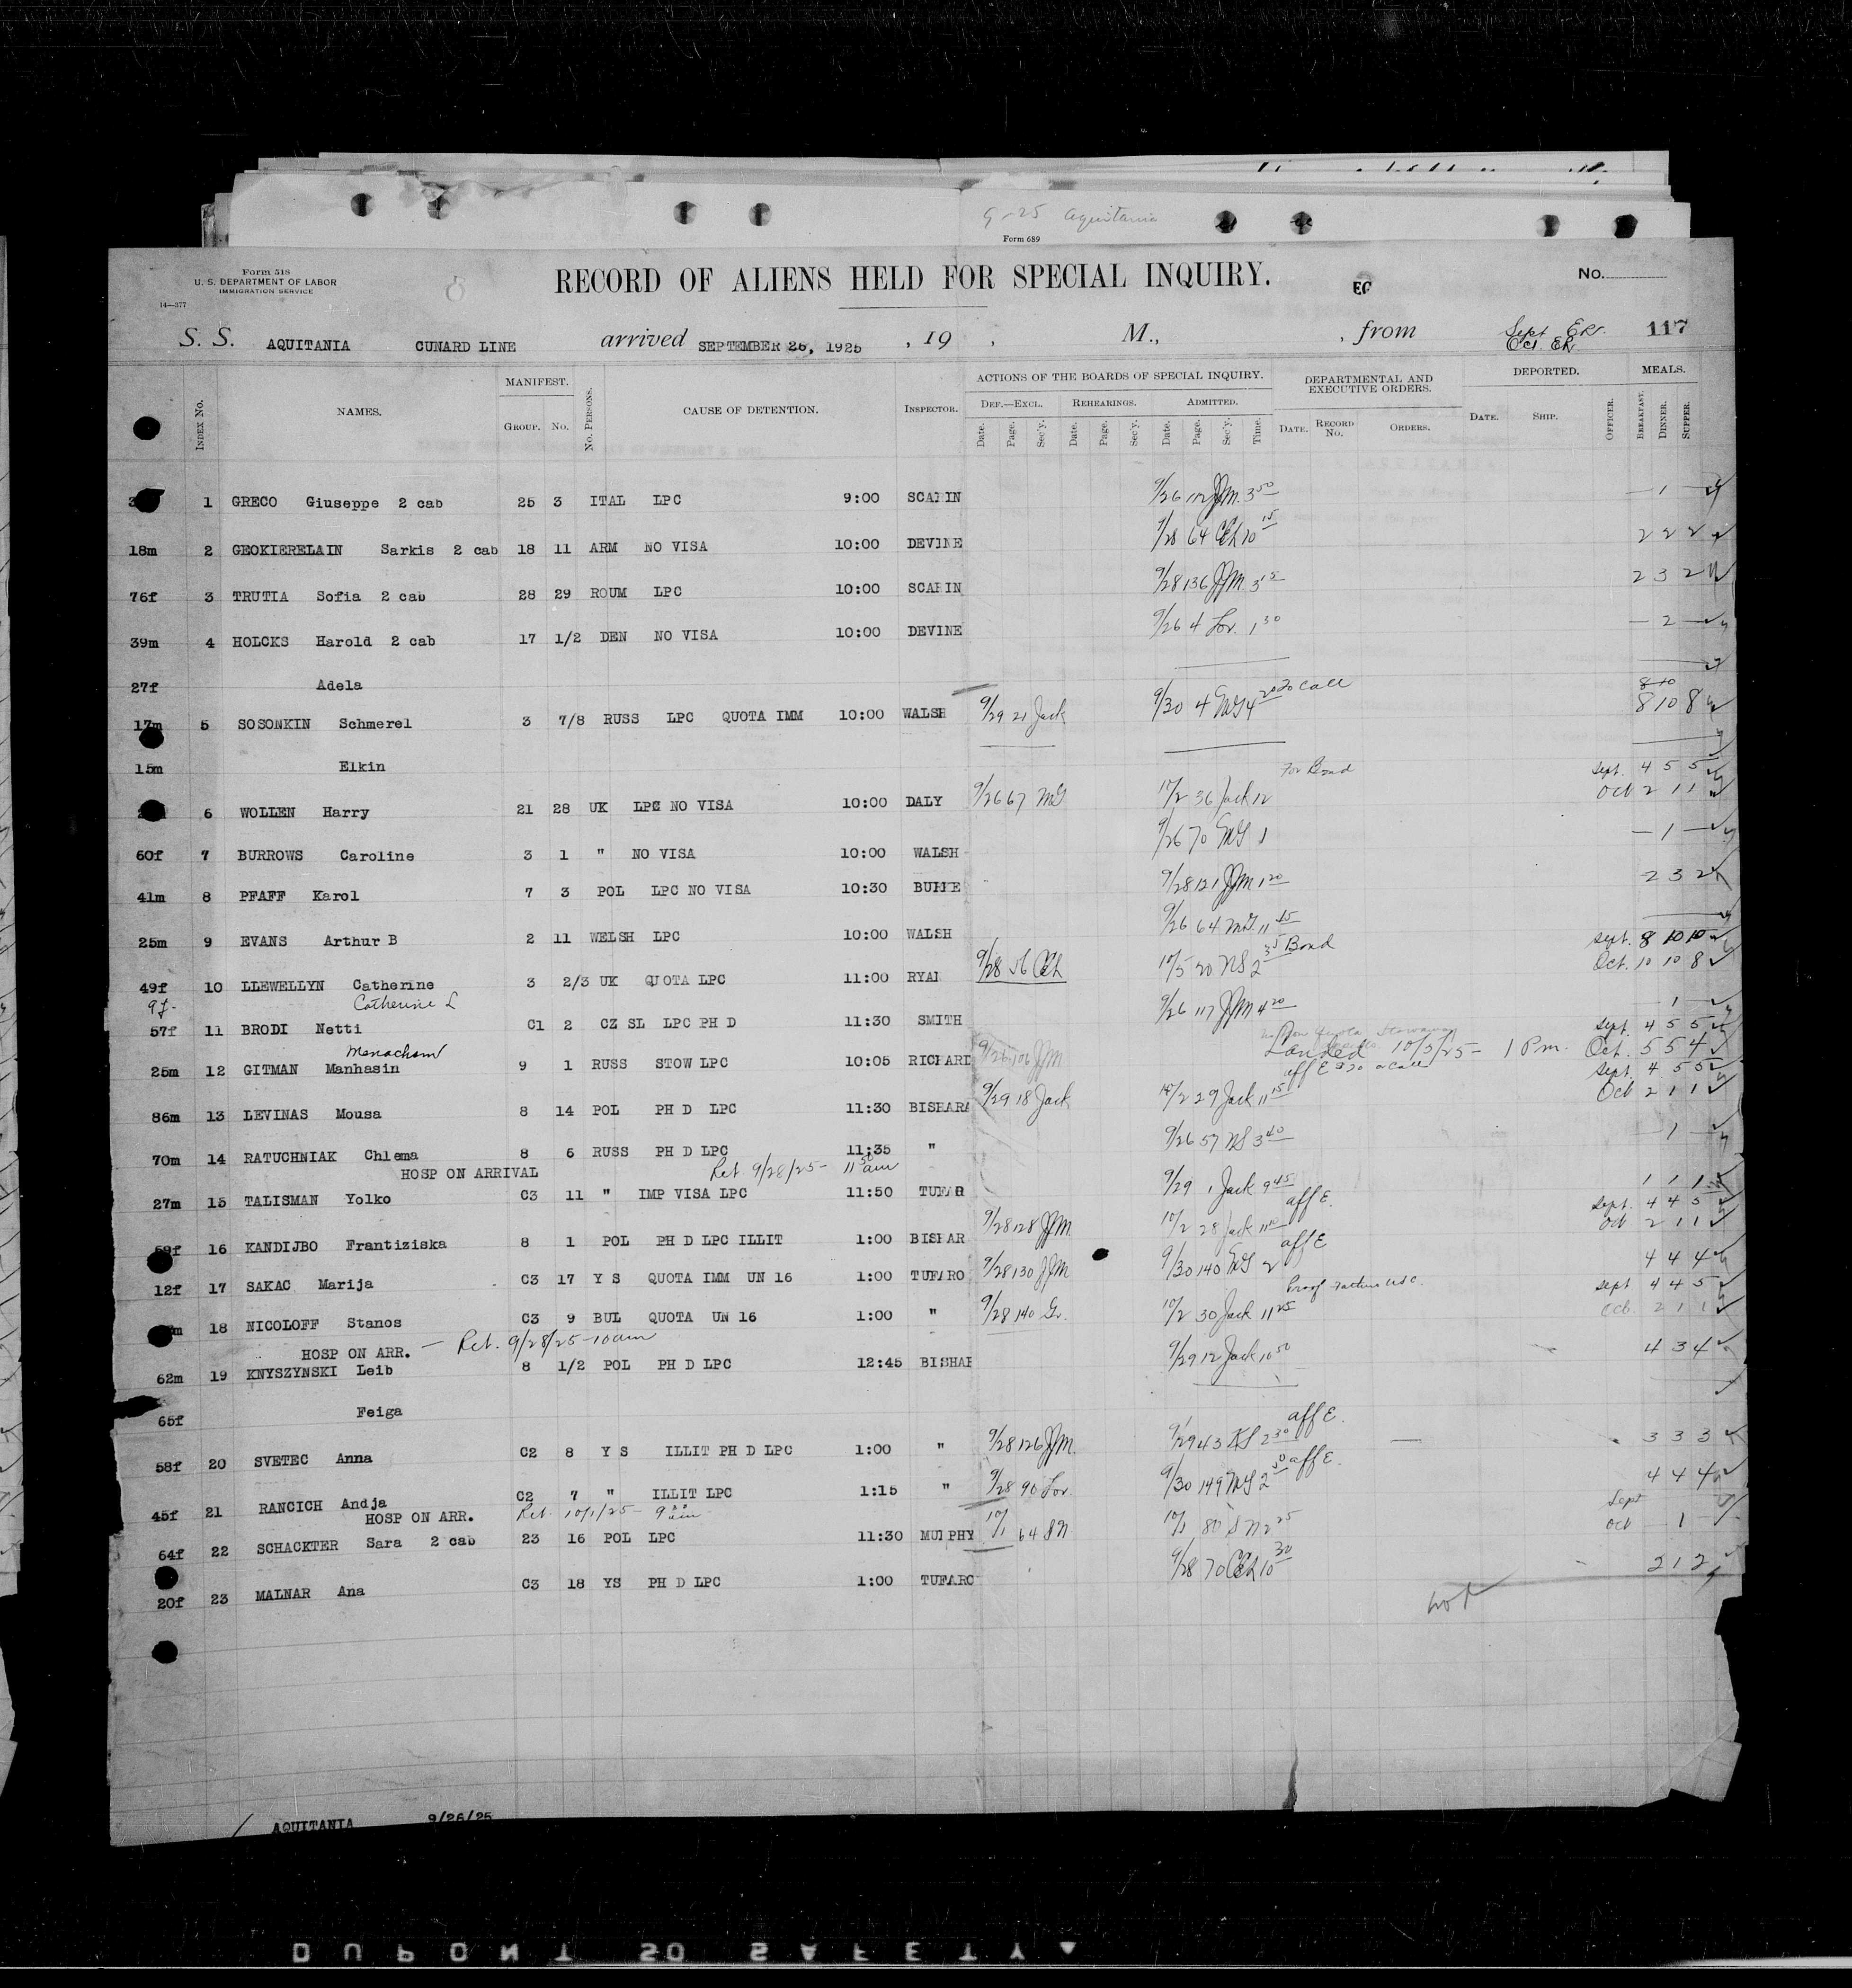 9-25 Aquitania
Form 689
Form 518
U. S. DEPARTMENT OF LABOR
IMMIGRATION SERVICE
14—377
RECORD OF ALIENS HELD FOR SPECIAL INQUIRY.
EC
No.
S. S. AQUITANIA CUNARD LINE arrived SEPTEMBER 26, 1925 , 19 , M., , from Sept. ER. 117
Oct. ER
INDEX No. NAMES. MANIFEST. GROUP. No. No. PERSONS. CAUSE OF DETENTION. INSPECTOR.
ACTIONS OF THE BOARDS OF SPECIAL INQUIRY. DEPARTMENTAL AND EXECUTIVE ORDERS. DEPORTED. MEALS.
DEF.—EXCL. REHEARINGS. ADMITTED.
Date. Page. Sec'y. Date. Page. Sec'y. Date. Page. Sec'y. Time. DATE. RECORD No. ORDERS. DATE. SHIP. OFFICER. BREAKFAST. DINNER. SUPPER.
1 GRECO Giuseppe 2 cab 25 3 ITAL LPC 9:00 9/26 112 JJM. 3 50 — 1 —
18m 2 GEOKIERELAIN Sarkis 2 cab 18 11 ARM NO VISA 10:00 DEVINE 9/28 64 10 15 2 2 2
76f 3 TRUTIA Sofia 2 cab 28 29 ROUM LPC 10:00 9/28 136 JJM. 3 15 2 3 2
39m 4 HOLCKS Harold 2 cab 17 1/2 DEN NO VISA 10:00 DEVINE 9/26 4 Lov. 1 30 — 2 —
27f Adela
17m 5 SOSONKIN Schmerel 3 7/8 RUSS LPC QUOTA IMM 10:00 WALSH 9/29 21 Jack 9/30 4 to call 8 10 8
15m Elkin
6 WOLLEN Harry 21 28 UK LPC NO VISA 10:00 DALY 9/26 67 MG 10/2 36 Jack 12 For Bond Sept. 4 5 5
Oct 2 1 1
60f 7 BURROWS Caroline 3 1 " NO VISA 10:00 WALSH 9/26 70 1 — 1 —
41m 8 PFAFF Karol 7 3 POL LPC NO VISA 10:30 BURKE 9/28 121 JJM 1 20 2 3 2
25m 9 EVANS Arthur B 2 11 WELSH LPC 10:00 WALSH 9/26 64 MG. 11 45
49f 10 LLEWELLYN Catherine 3 2/3 UK QUOTA LPC 11:00 RYAN 9/28 56 10/5 20 NS 2 35 Bond Sept. 8 10 10
Oct. 10 10 8
9f- Catherine L
57f 11 BRODI Netti C1 2 CZ SL LPC PH D 11:30 SMITH 9/26 117 JJM 4 20 — 1 —
Menachem
25m 12 GITMAN Manhasin 9 1 RUSS STOW LPC 10:05 RICHARD 9/26 106 JJM Landed 10/5/25 - 1 Pm. Sept. 4 5 5
Oct. 5 5 4
86m 13 LEVINAS Mousa 8 14 POL PH D LPC 11:30 BISHARA 9/29 18 Jack 10/2 29 Jack 11 15 aff E call Sept. 4 5 5
Oct 2 1 1
70m 14 RATUCHNIAK Chlema 8 6 RUSS PH D LPC 11:35 " 9/26 57 NS 3 40 — 1 —
HOSP ON ARRIVAL Ret 9/28/25 - 11 50 am
27m 15 TALISMAN Yolko C3 11 " IMP VISA LPC 11:50 9/29 1 Jack 9 45 1 1 1
16 KANDIJBO Frantiziska 8 1 POL PH D LPC ILLIT 1:00 9/28 128 JJM. 10/2 28 Jack aff E. Sept. 4 4 5
Oct 2 1 1
12f 17 SAKAC Marija C3 17 Y S QUOTA IMM UN 16 1:00 TUFARO 9/28 130 JJM 9/30 140 2 aff E 4 4 4
18 NICOLOFF Stanos C3 9 BUL QUOTA UN 16 1:00 " 9/28 140 Gr. 10/2 30 Jack 11 25 Proof Sept 4 4 5
Oct. 2 1 1
HOSP ON ARR. — Ret. 9/28/25 - 10 am
62m 19 KNYSZYNSKI Leib 8 1/2 POL PH D LPC 12:45 9/29 12 Jack 10 50 4 3 4
65f Feiga
58f 20 SVETEC Anna C2 8 Y S ILLIT PH D LPC 1:00 " 9/28 126 JJM. 9/29 43 2 30 aff E. 3 3 3
45f 21 RANCICH Andja C2 7 " ILLIT LPC 1:15 " 9/28 90 Lov. 9/30 149 2 50 aff E. 4 4 4
HOSP ON ARR. Ret. 10/1/25 - 9 am
64f 22 SCHACKTER Sara 2 cab 23 16 POL LPC 11:30 MURPHY 10/1 64 SN 10/1 80 SN 2 25 Sept
Oct — 1 —
20f 23 MALNAR Ana C3 18 YS PH D LPC 1:00 TUFARO 9/28 70 10 30 2 1 2
AQUITANIA 9/26/25
DUPONT SO SAFETY